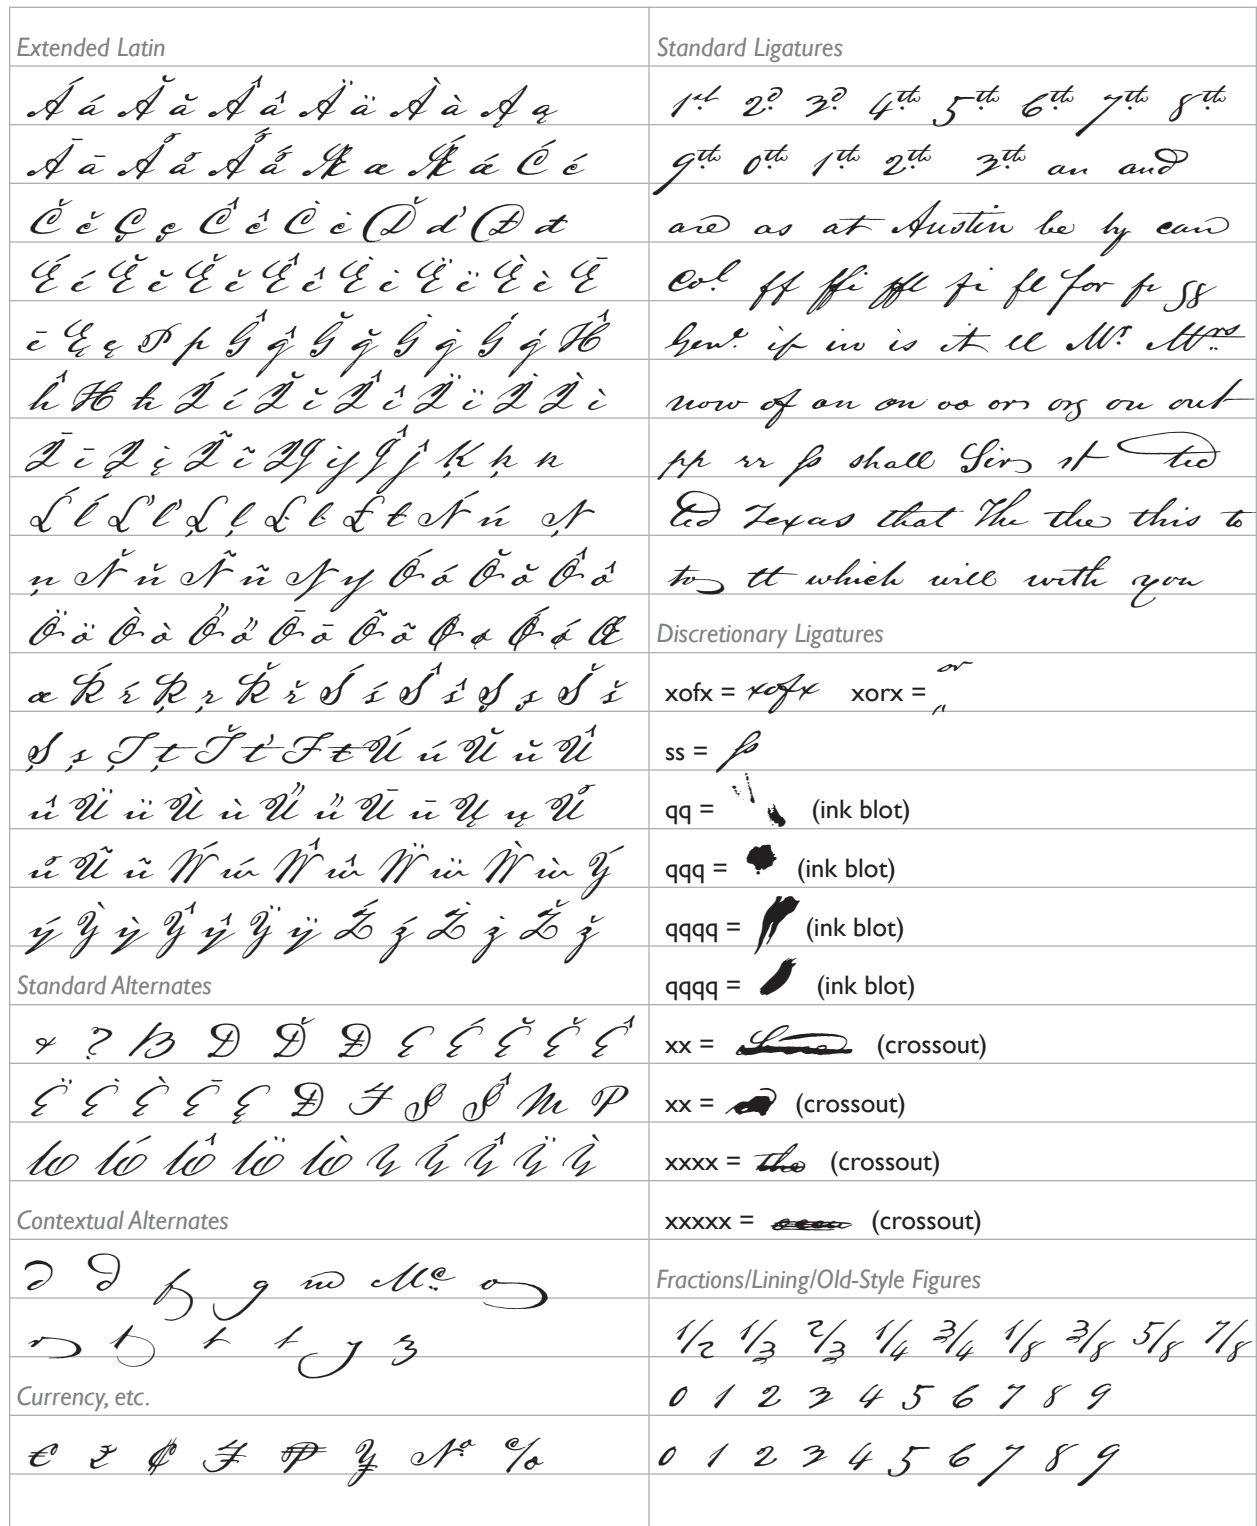 Extended Latin
Á á Ă ă Â â Ä ä À à Ą ą
Ā ā Å å Ǻ ǻ Æ æ Ǽ ǽ Ć ć
Č č Ç ç Ĉ ĉ Ċ ċ Ď ď Đ đ
É é Ĕ ĕ Ě ě Ê ê Ė ė Ë ë È è Ē
ē Ę ę Þ þ Ĝ ĝ Ğ ğ Ġ ġ Ǵ ǵ Ĥ
ĥ Ħ ħ Í í Ĭ ĭ Î î Ï ï İ Ì ì
Ī ī Į į Ĩ ĩ Ĳ ĳ Ĵ ĵ Ķ ķ ĸ
Ĺ ĺ Ľ ľ Ļ ļ Ŀ ŀ Ł ł Ń ń Ņ
ņ Ň ň Ñ ñ Ŋ ŋ Ó ó Ŏ ŏ Ô ô
Ö ö Ò ò Ő ő Ō ō Õ õ Ø ø Ǿ ǿ Œ
œ Ŕ ŕ Ŗ ŗ Ř ř Ś ś Ŝ ŝ Ş ş Š š
Ș ș Ţ ţ Ť ť Ŧ ŧ Ú ú Ŭ ŭ Û
û Ü ü Ù ù Ű ű Ū ū Ų ų Ů
ů Ũ ũ Ẃ ẃ Ŵ ŵ Ẅ ẅ Ẁ ẁ Ý
ý Ỳ ỳ Ŷ ŷ Ÿ ÿ Ź ź Ż ż Ž ž
Standard Alternates
& ? B D Ď Đ E É Ĕ Ě Ê
Ë Ė È Ē Ę Đ F S Ŝ M P
W Ẃ Ŵ Ẅ Ẁ Y Ý Ŷ Ÿ Ỳ
Contextual Alternates
d d f g m Mc o
r t t t y z
Currency, etc.
€ £ ₵ ₣ ₱ ¥ № %
Standard Ligatures
1st 2d 3d 4th 5th 6th 7th 8th
9th 0th 1th 2th 3th an and
are as at Austin be by can
Col ff ffi ffl fi fl for fr gg
Genl if in is it ll Mr Mrs
now of on on oo or org ou out
pp rr ss shall Sir st ted
ted Texas that The the this to
to tt which will with you
Discretionary Ligatures
xofx = xofx xorx = or "
ss = ss
qq = (ink blot)
qqq = (ink blot)
qqqq = (ink blot)
qqqq = (ink blot)
xx = (crossout)
xx = (crossout)
xxxx = the (crossout)
xxxxx = (crossout)
Fractions/Lining/Old-Style Figures
1/2 1/3 2/3 1/4 3/4 1/8 3/8 5/8 7/8
0 1 2 3 4 5 6 7 8 9
0 1 2 3 4 5 6 7 8 9